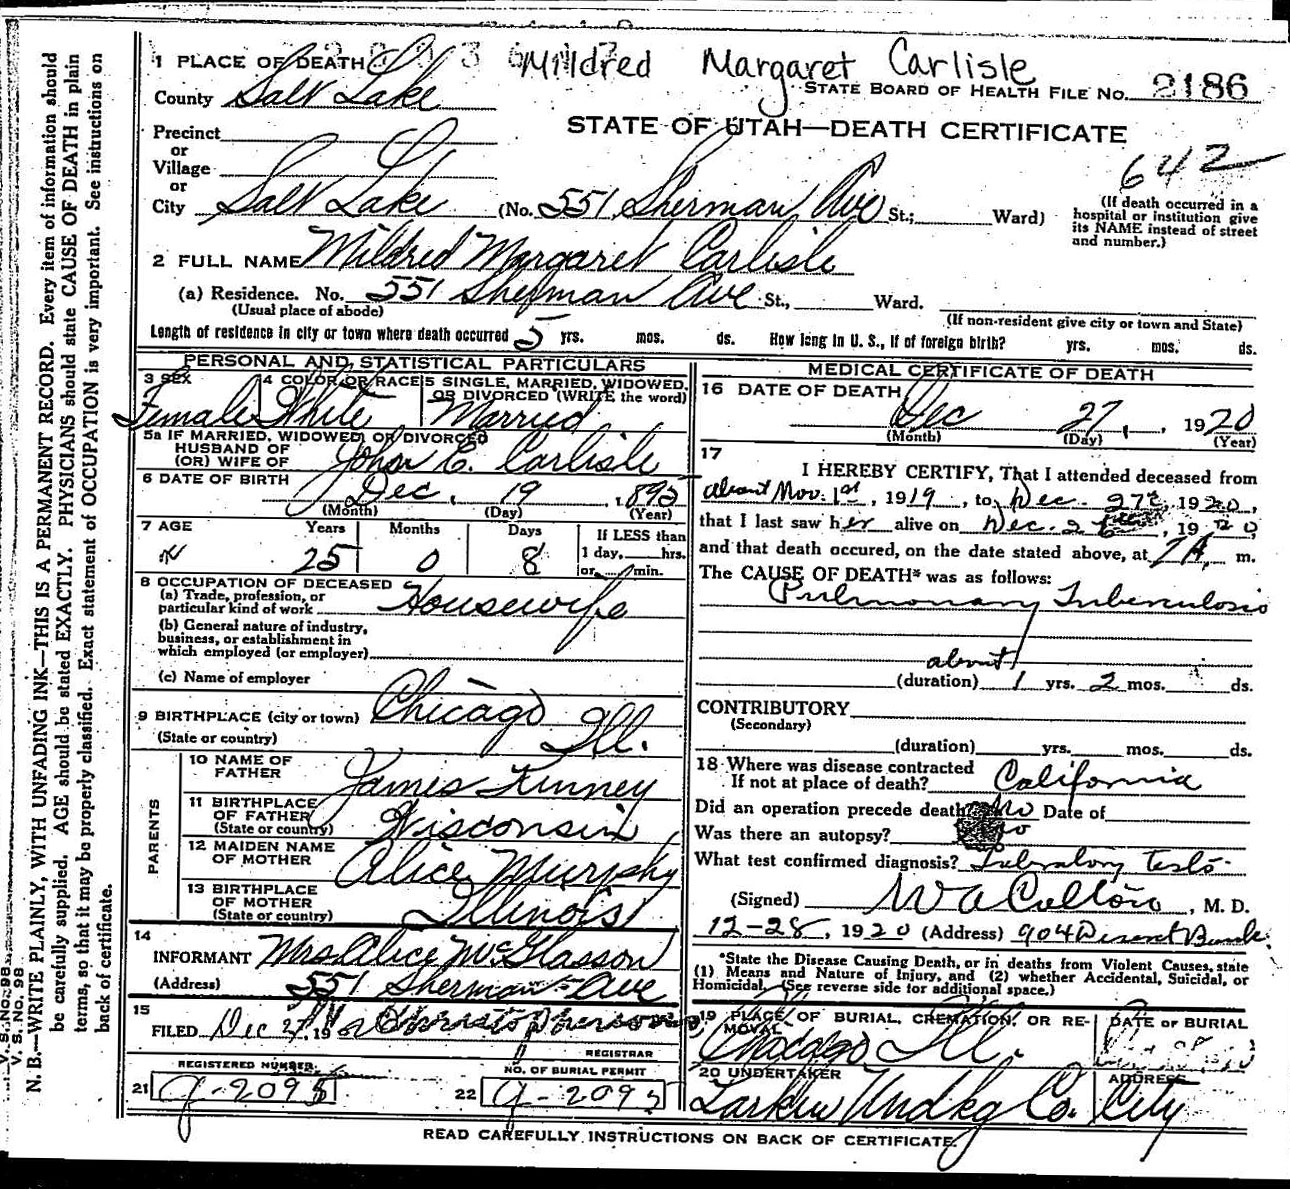 Mildred Margaret Carlisle
1 PLACE OF DEATH
STATE BOARD OF HEALTH FILE No. 2186
County Salt Lake
STATE OF UTAH—DEATH CERTIFICATE
Precinct
or
Village
642
or
City Salt Lake (No. 551 Sherman Ave St.; Ward)
(If death occurred in a
hospital or institution give
its NAME instead of street
and number.)
2 FULL NAME Mildred Margaret Carlisle
(a) Residence. No. 551 Sherman Ave St., Ward.
(Usual place of abode)
(If non-resident give city or town and State)
Length of residence in city or town where death occurred 5 yrs. mos. ds. How long in U. S., if of foreign birth? yrs. mos. ds.
PERSONAL AND STATISTICAL PARTICULARS
3 SEX
Female
4 COLOR OR RACE
White
5 SINGLE, MARRIED, WIDOWED,
OR DIVORCED (WRITE the word)
Married
5a IF MARRIED, WIDOWED OR DIVORCED
HUSBAND OF
(OR) WIFE OF John E. Carlisle
6 DATE OF BIRTH
Dec. 19, 1895
(Month) (Day) (Year)
7 AGE Years Months Days If LESS than
25 0 8 1 day, hrs.
or min.
8 OCCUPATION OF DECEASED
(a) Trade, profession, or
particular kind of work Housewife
(b) General nature of industry,
business, or establishment in
which employed (or employer)
(c) Name of employer
9 BIRTHPLACE (city or town) Chicago
(State or country) Ill.
PARENTS
10 NAME OF
FATHER James Kinney
11 BIRTHPLACE
OF FATHER
(State or country) Wisconsin
12 MAIDEN NAME
OF MOTHER Alice Murphy
13 BIRTHPLACE
OF MOTHER
(State or country) Illinois
14
INFORMANT Mrs Alice McGlasson
(Address) 551 Sherman Ave
15
FILED Dec 27, 19
REGISTRAR
REGISTERED NUMBER
21 G-2095
NO. OF BURIAL PERMIT
22 G-2095
MEDICAL CERTIFICATE OF DEATH
16 DATE OF DEATH
Dec 27, 1920
(Month) (Day) (Year)
17
I HEREBY CERTIFY, That I attended deceased from
about Nov. 1st, 1919, to Dec. 27, 1920,
that I last saw her alive on Dec. 26, 1920,
and that death occured, on the date stated above, at 7 A. m.
The CAUSE OF DEATH* was as follows:
Pulmonary Tuberculosis
about
(duration) 1 yrs. 2 mos. ds.
CONTRIBUTORY
(Secondary)
(duration) yrs. mos. ds.
18 Where was disease contracted
If not at place of death? California
Did an operation precede death? No Date of
Was there an autopsy? No
What test confirmed diagnosis? Laboratory Tests
(Signed) W A Callon, M. D.
12-28, 1920 (Address) 904 Deseret Bank
*State the Disease Causing Death, or in deaths from Violent Causes, state
(1) Means and Nature of Injury, and (2) whether Accidental, Suicidal, or
Homicidal. (See reverse side for additional space.)
19 PLACE OF BURIAL, CREMATION, OR RE-
MOVAL
Chicago Ill.
DATE OF BURIAL
20 UNDERTAKER
Larkin Undkg Co.
ADDRESS
City
READ CAREFULLY INSTRUCTIONS ON BACK OF CERTIFICATE.
V. S. No. 98
V. S. No. 98
N. B.—WRITE PLAINLY, WITH UNFADING INK—THIS IS A PERMANENT RECORD. Every item of information should
be carefully supplied. AGE should be stated EXACTLY. PHYSICIANS should state CAUSE OF DEATH in plain
terms, so that it may be properly classified. Exact statement of OCCUPATION is very important. See instructions on
back of certificate.